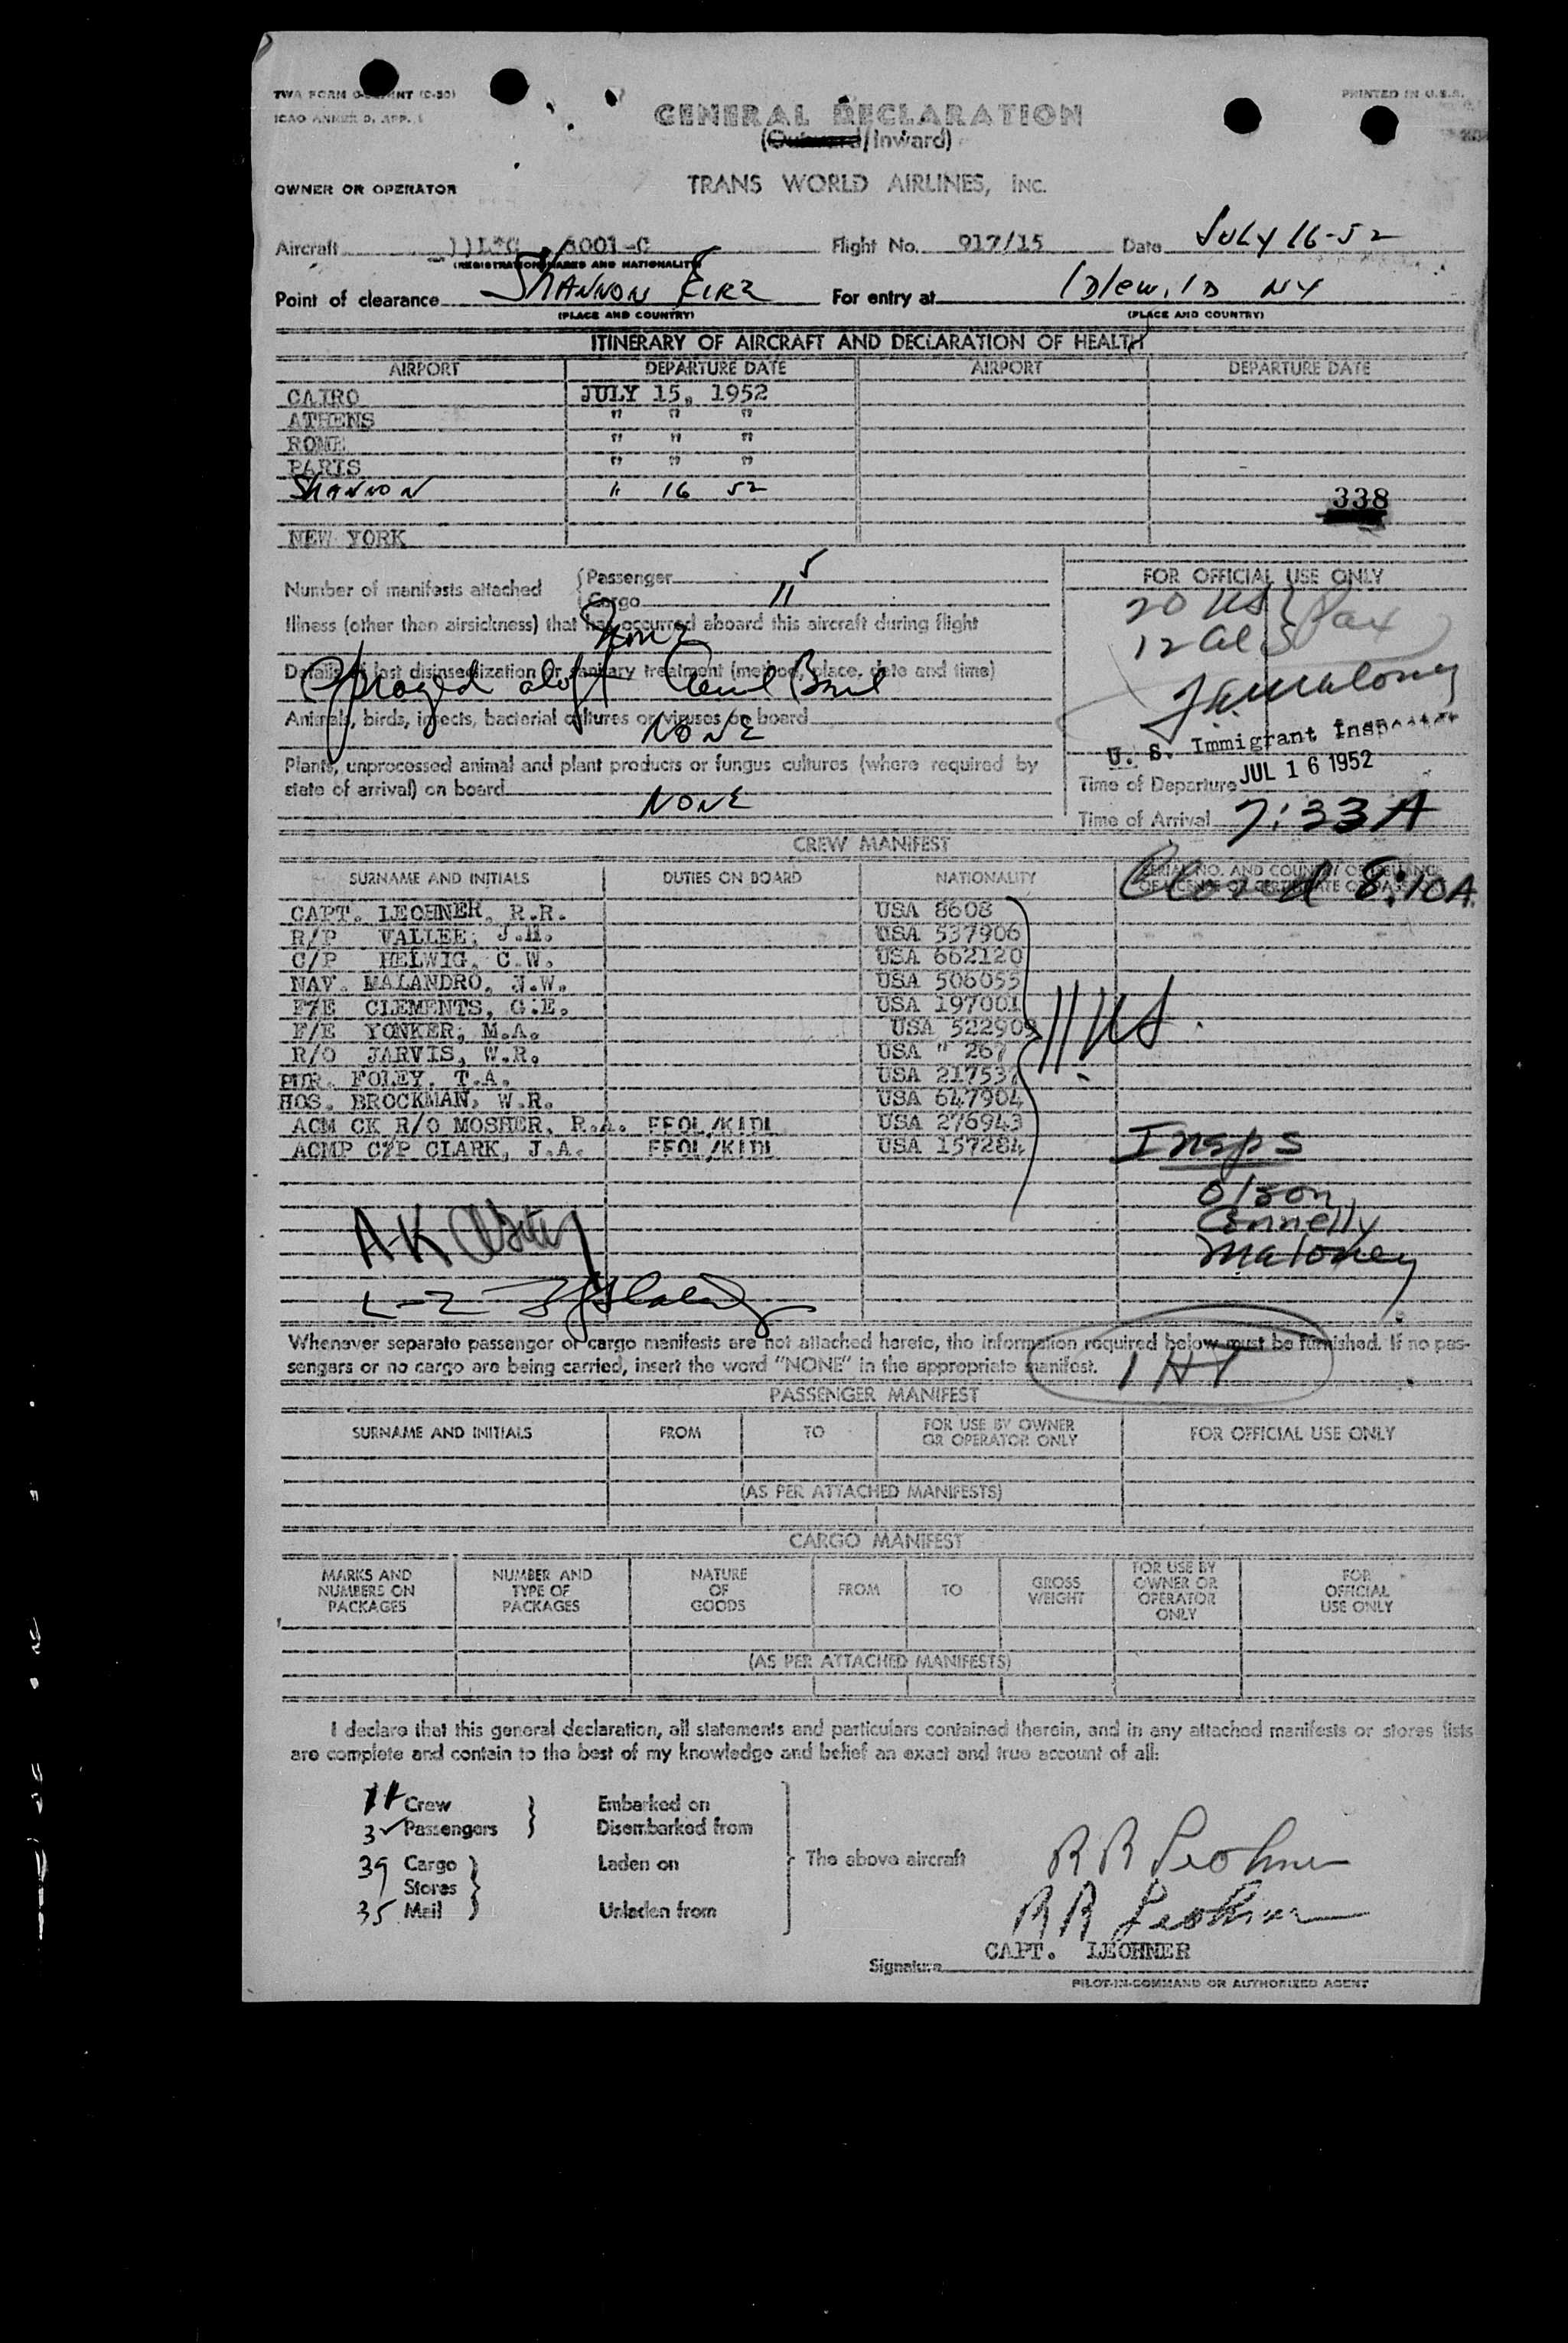 PRINTED IN U.S.A.
ICAO ANNEX 9, APP. 1
GENERAL DECLARATION
(Outward/Inward)
OWNER OR OPERATOR TRANS WORLD AIRLINES, INC.
Aircraft 6001-C Flight No. 917/15 Date JULY 16-52
(REGISTRATION MARKS AND NATIONALITY)
Point of clearance SHANNON EIRE For entry at Idlewild NY
(PLACE AND COUNTRY) (PLACE AND COUNTRY)
ITINERARY OF AIRCRAFT AND DECLARATION OF HEALTH
AIRPORT DEPARTURE DATE AIRPORT DEPARTURE DATE
CAIRO JULY 15, 1952
ATHENS " " "
ROME " " "
PARIS " " "
SHANNON " 16 52
338
NEW YORK
Number of manifests attached Passenger 5
Cargo 11
FOR OFFICIAL USE ONLY
20 US } Pax
12 Als
Illness (other than airsickness) that has occurred aboard this aircraft during flight
None
Details of last disinsectization or sanitary treatment (method, place, date and time)
Sprayed aloft
Animals, birds, insects, bacterial cultures or viruses on board
NONE
U. S. Immigrant Inspector
Plants, unprocessed animal and plant products or fungus cultures (where required by
state of arrival) on board
NONE
Time of Departure JUL 16 1952
Time of Arrival 7:33 A
CREW MANIFEST
SURNAME AND INITIALS DUTIES ON BOARD NATIONALITY SERIAL NO. AND COUNTRY OF ISSUANCE
OF LICENSE OR CERTIFICATE OR PASSPORT
Cleared 8:10A
CAPT. LEOHNER, R.R. USA 8608
R/P VALLEE, J.H. USA 537906
C/P HELWIG, C.W. USA 662120
NAV. MALANDRO, J.W. USA 506055
F/E CLEMENTS, G.E. USA 197001
F/E YONKER, M.A. USA 522909
11 US
R/O JARVIS, W.R. USA " 267
PUR. FOLEY, T.A. USA 217537
HOS. BROCKMAN, W.R. USA 647904
ACM CK R/O MOSHER, R.A. FFOL/KIDL USA 276943
ACMP C/P CLARK, J.A. FFOL/KIDL USA 157284
Insps
Olson
Connelly
Maloney
Whenever separate passenger or cargo manifests are not attached hereto, the information required below must be furnished. If no pas-
sengers or no cargo are being carried, insert the word "NONE" in the appropriate manifest.
1 HT
PASSENGER MANIFEST
SURNAME AND INITIALS FROM TO FOR USE BY OWNER
OR OPERATOR ONLY FOR OFFICIAL USE ONLY
(AS PER ATTACHED MANIFESTS)
CARGO MANIFEST
MARKS AND
NUMBERS ON
PACKAGES NUMBER AND
TYPE OF
PACKAGES NATURE
OF
GOODS FROM TO GROSS
WEIGHT FOR USE BY
OWNER OR
OPERATOR
ONLY FOR
OFFICIAL
USE ONLY
(AS PER ATTACHED MANIFESTS)
I declare that this general declaration, all statements and particulars contained therein, and in any attached manifests or stores lists
are complete and contain to the best of my knowledge and belief an exact and true account of all:
11 Crew Embarked on
Passengers Disembarked from
39 Cargo Laden on The above aircraft
Stores
35 Mail Unladen from
R R Leohner
R R Leohner
CAPT. LEOHNER
Signature
PILOT-IN-COMMAND OR AUTHORIZED AGENT